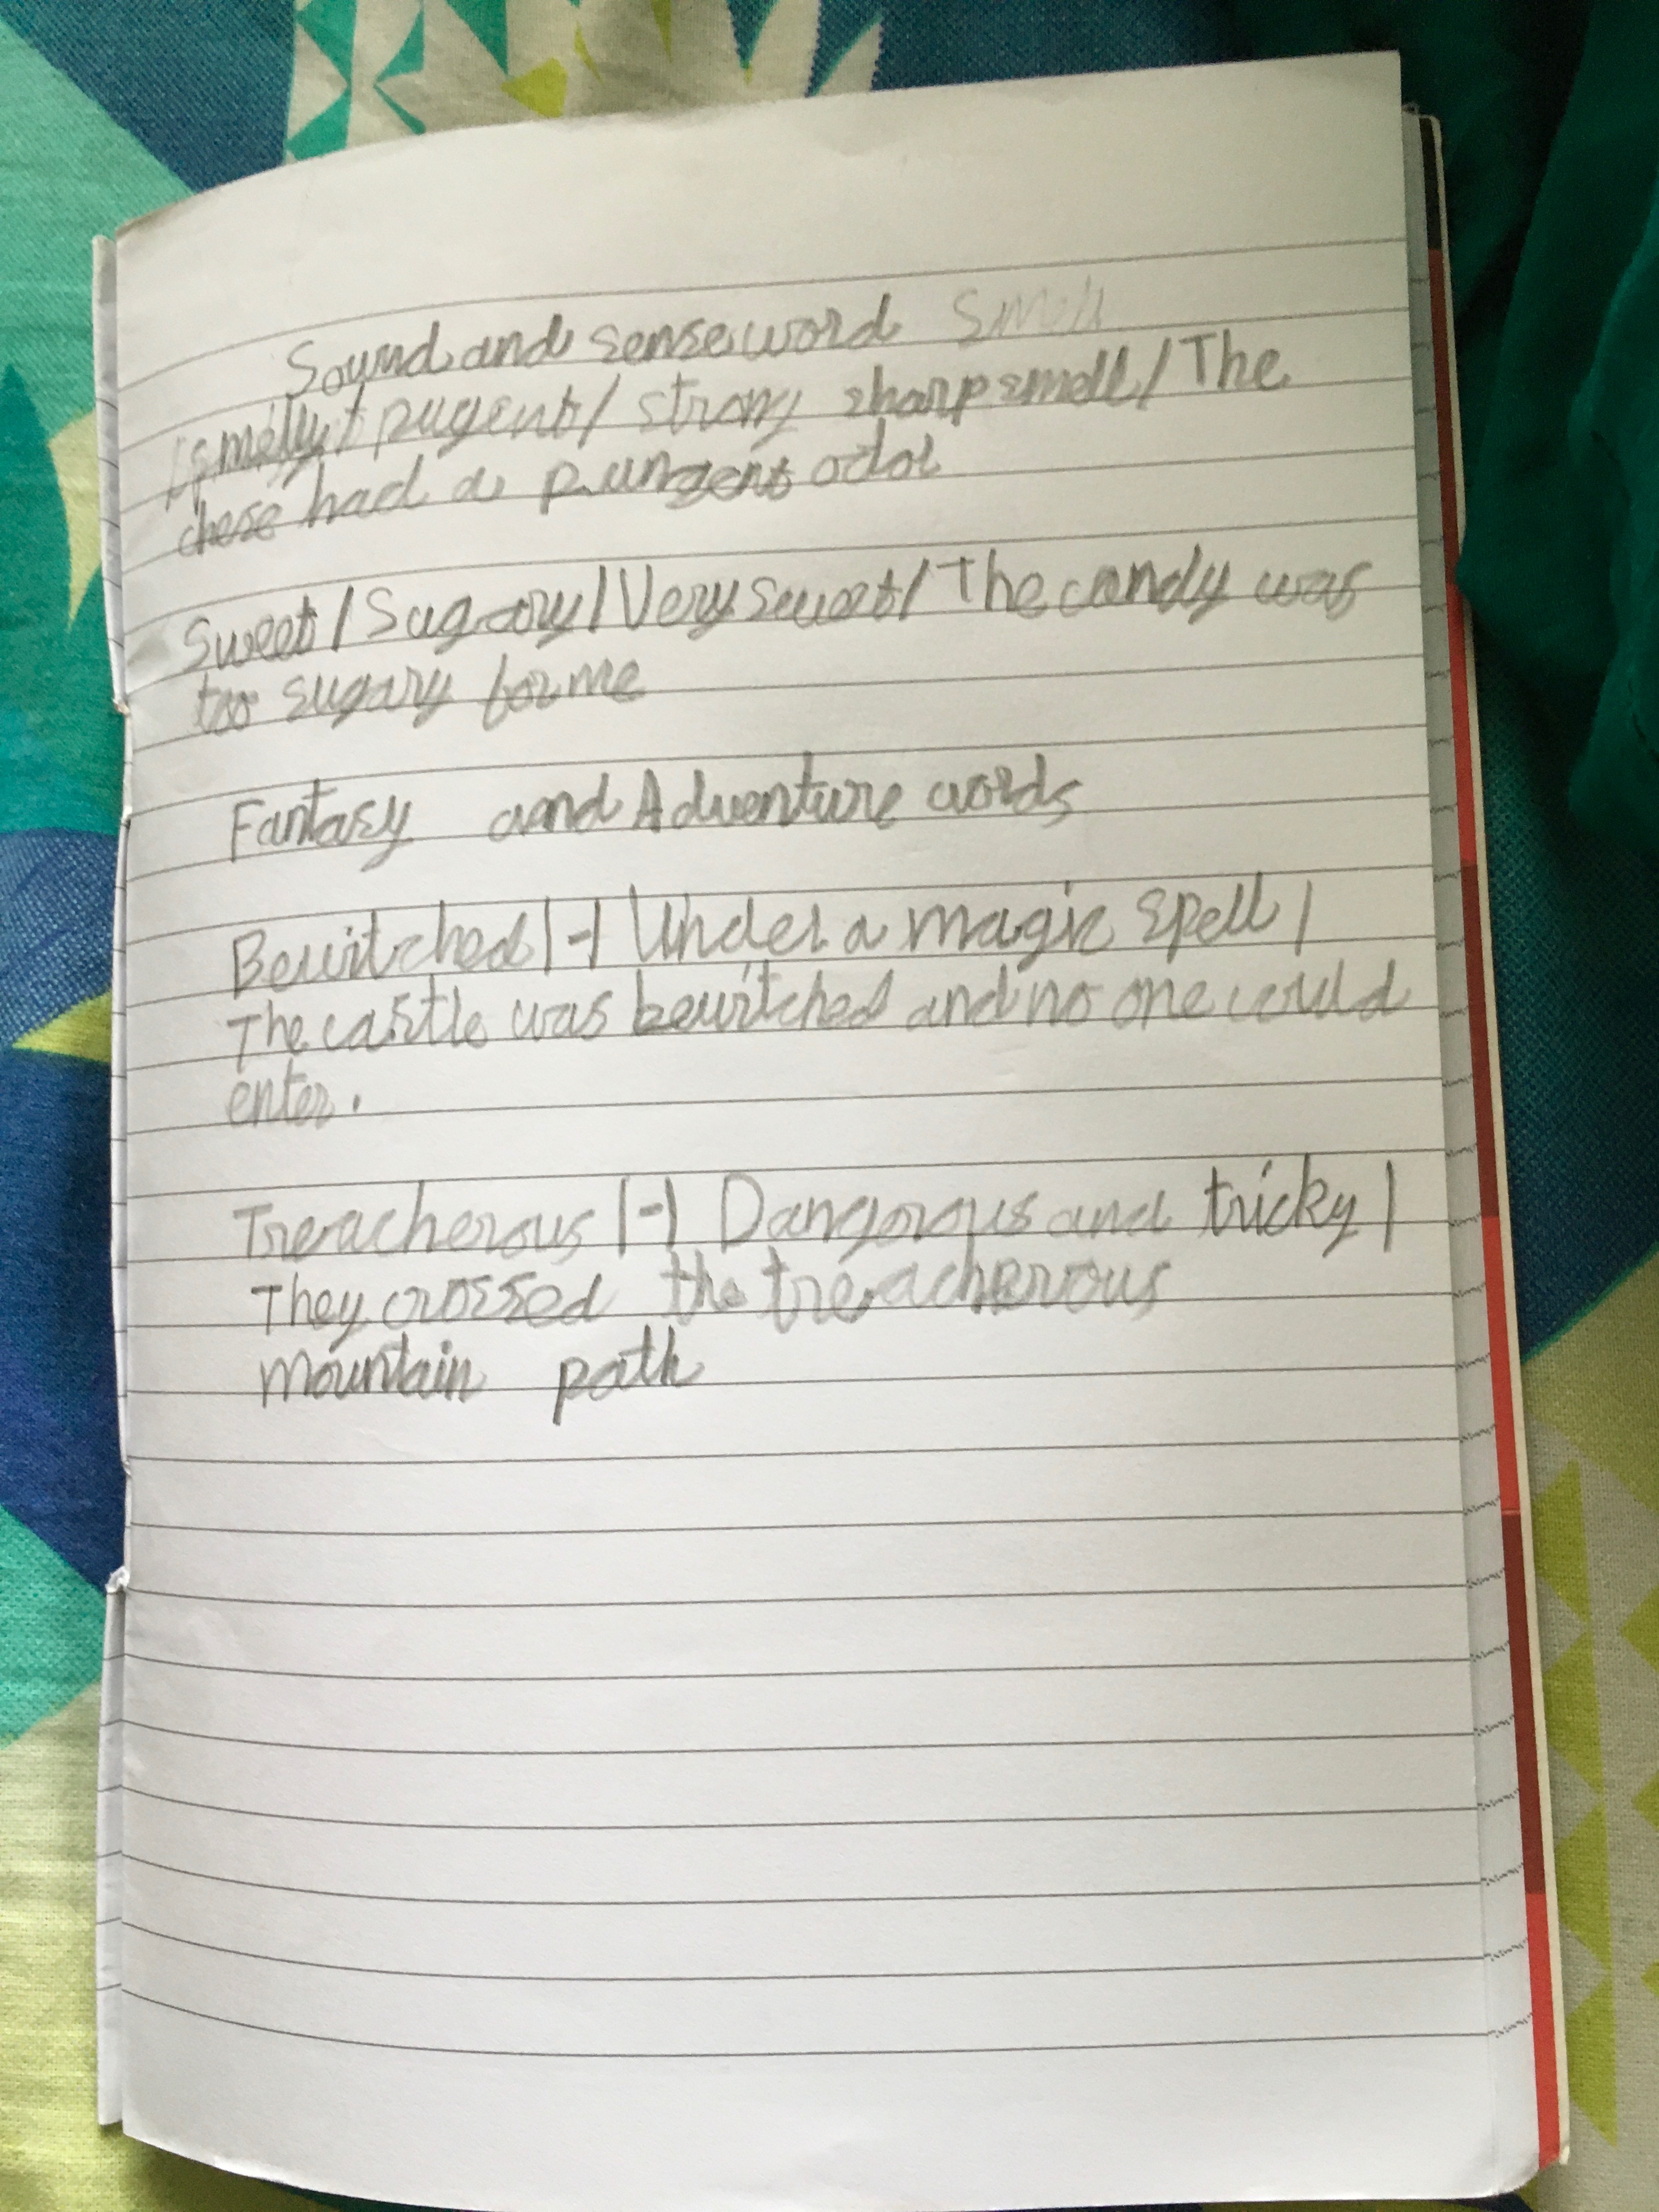 Sound and sense word Smell
/smelly/ pugent/ strong sharp smell/ The
chese had a pungent odor
Sweet / Sugary / Very sweet / The candy was
too sugary for me
Fantasy and Adventure words
Bewitched |-| Under a magic spell |
The castle was bewitched and no one could
enter.
Treacherous |-| Dangorous and tricky |
They crossed the treacherous
mountain path